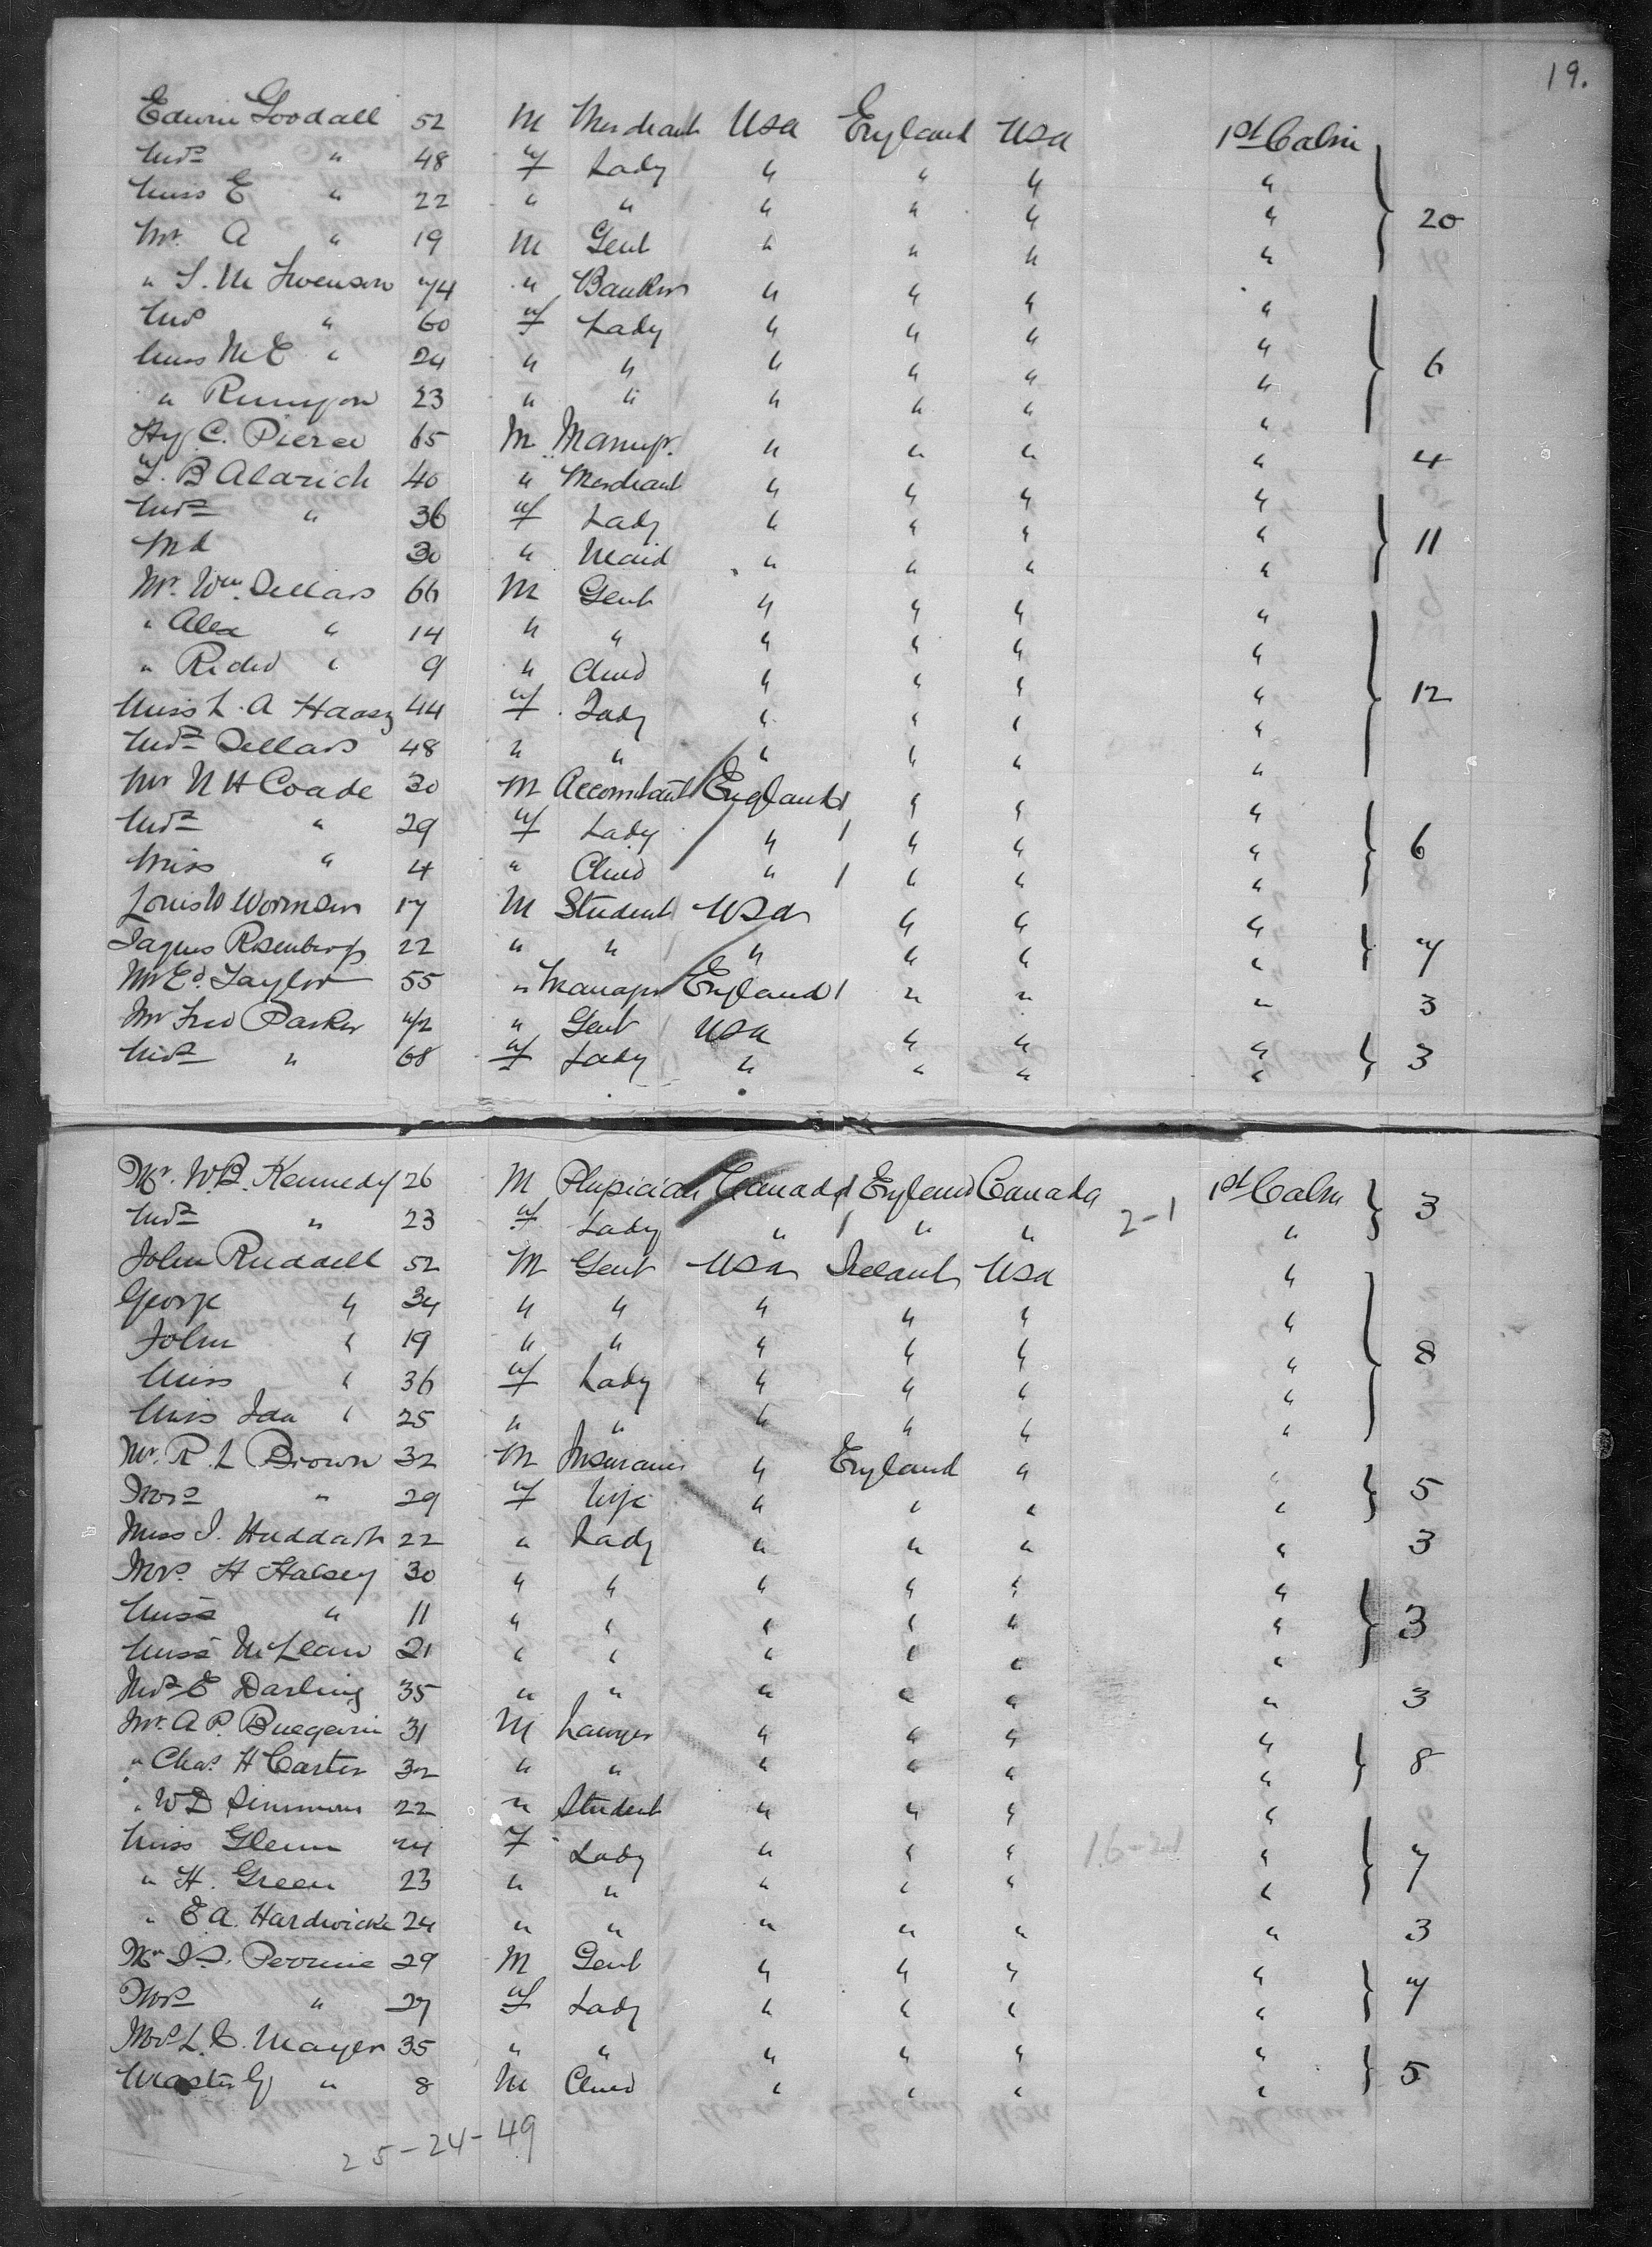 19.
Edwin Goodall 52 M Merchant USA England USA 1st Cabin
Mrs " 48 f Lady " " " "
Miss E " 22 " " " " " " 20
Mr. A " 19 M Gent " " " "
" S. M Swenson 74 " Banker " " " "
Mrs " 60 f Lady " " " "
Miss M E " 24 " " " " " " 6
" Runyon 23 " " " " " "
Hy C. Pierce 65 M Manufr. " " " " 4
T. B Aldrich 40 " Merchant " " " "
Mrs " 36 f Lady " " " " 11
Md 30 " Maid " " " "
Mr. Wm. Sellars 66 M Gent " " " "
" Alex " 14 " " " " " "
" Richd " 9 " Child " " " " 12
Miss L. A 44 f Lady " " " "
Mrs Sellars 48 " " " " " "
Mr N H Coade 30 M Accountant England 1 " " "
Mrs " 29 f Lady " 1 " " " 6
Miss " 4 " Child " 1 " " "
Louis W 17 M Student USA " " "
Jaques Rosenberg 22 " " " " " " 7
Mr Ed. Taylor 55 " Manager England 1 " " " 3
Mr Fred Parker 72 " Gent USA " " "
Mrs " 68 f Lady " " " " 3
Mr. W. B. Kennedy 26 M Physician Canada 1 England Canada 1st Cabin 3
Mrs " 23 f Lady " 1 " " 2-1 "
John Ruddell 52 M Gent USA Ireland USA "
George " 34 " " " " " "
John " 19 " " " " " " 8
Miss " 36 f Lady " " " "
Miss Ida " 25 " " " " " "
Mr. R. L Brown 32 M Insurance " England " " 5
Mrs " 29 f Wife " " " "
Miss I. Huddart 22 " Lady " " " " 3
Mrs. H Halsey 30 " " " " " "
Miss " 11 " " " " " " 3
Miss McLean 21 " " " " " "
Mrs E Darling 35 " " " " " " 3
Mr. A P. 31 M Lawyer " " " "
" Chas. H Carter 32 " " " " " " 8
" W D Simmons 22 " Student " " " "
Miss Glenn 24 f Lady " " " " 7
" H. Green 23 " " " " " "
" E A. Hardwicke 24 " " " " " " 3
Mr Perrine 29 M Gent " " " " 7
Mrs " 27 f Lady " " " "
Mrs L. C. Mayer 35 " " " " " " 5
Master G " 8 M Child " " " "
25-24-49